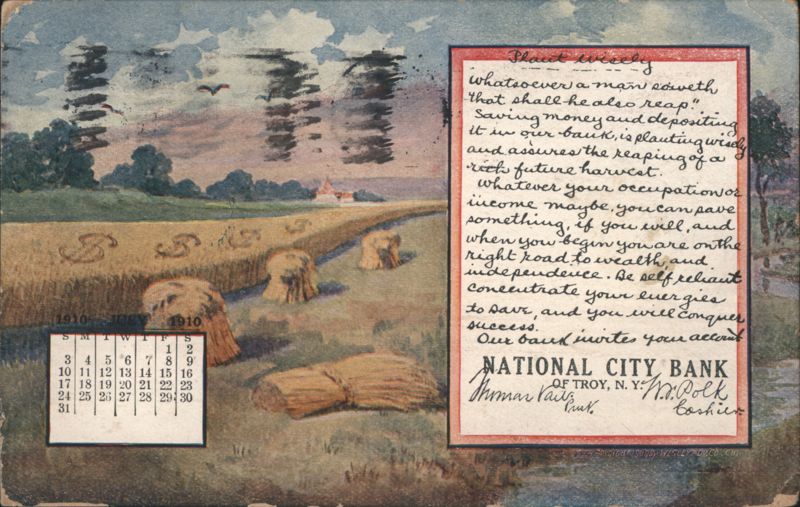 1910 JULY 1910
S M T W T F S
1 2
3 4 5 6 7 8 9
10 11 12 13 14 15 16
17 18 19 20 21 22 23
24 25 26 27 28 29 30
31
Plant Wisely
Whatsoever a man soweth
"that shall he also reap."
Saving money and depositing
it in our bank, is planting wisely
and assures the reaping of a
rich future harvest.
Whatever your occupation or
income may be, you can save
something, if you will, and
when you begin you are on the
right road to wealth, and
independence. Be self reliant
concentrate your energies
to save, and you will conquer
success.
Our bank invites your account
NATIONAL CITY BANK
OF TROY, N.Y.
Thomas Vail
Prest.
Wd. Polk
Cashier